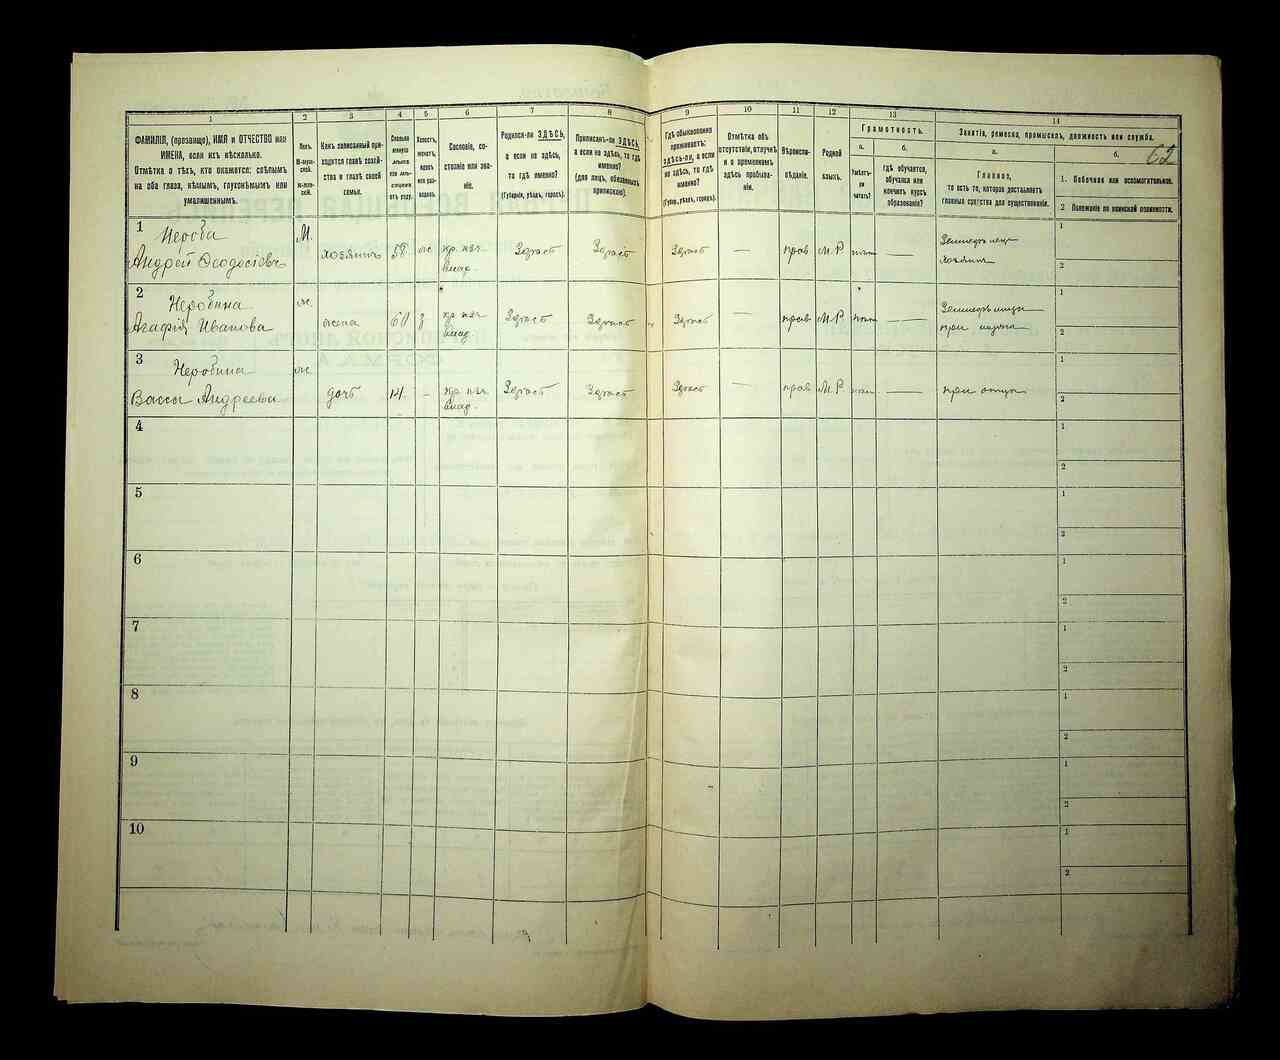 62
1
2
3
4
5
6
7
8
9
10
11
12
13
14
ФАМИЛІЯ, (прозвище), ИМЯ и ОТЧЕСТВО или
ИМЕНА, если ихъ нѣсколько.
Отмѣтка о тѣхъ, кто окажется: слѣпымъ
на оба глаза, нѣмымъ, глухонѣмымъ или
умалишеннымъ.
Полъ.
М-мужской.
Ж-женскій.
Какъ записанный при-
ходится главѣ хозяй-
ства и главѣ своей
семьи.
Сколько
минуло
лѣтъ
или мѣ-
сяцевъ
отъ роду.
Холостъ,
женатъ,
вдовъ
или раз-
веденъ.
Сословіе, со-
стояніе или зва-
ніе.
Родился-ли ЗДѢСЬ,
а если не здѣсь,
то гдѣ именно?
(Губернія, уѣздъ, городъ).
Приписанъ-ли ЗДѢСЬ,
а если не здѣсь, то гдѣ
именно?
(для лицъ, обязанныхъ
припискою).
Гдѣ обыкновенно
проживаетъ:
здѣсь-ли, а если
не здѣсь, то гдѣ
именно?
(Губерн., уѣздъ, городъ).
Отмѣтка объ
отсутствіи, отлучкѣ
и о временномъ
здѣсь пребыва-
ніи.
Вѣроиспо-
вѣданіе.
Родной
языкъ.
Грамотность.
а.
Умѣетъ-
ли
читать?
б.
гдѣ обучается,
обучался или
кончилъ курсъ
образованія?
Занятіе, ремесло, промыселъ, должность или служба.
а.
Главное,
то есть то, которое доставляетъ
главныя средства для существованія.
б.
1. Побочное или вспомогательное.
2 Положеніе по воинской повинности.
1
Андрей Ѳеодосіевъ
М.
хозяинъ
58
Здѣсь
Здѣсь
Здѣсь
—
прав
М.Р
—
хозяинъ
1
2
2
Неробина
Агафія Иванова
ж
жена
60
Здѣсь
Здѣсь
Здѣсь
—
прав
М.Р
—
при мужѣ
1
2
3
Неробина
Васса Андреева
ж
дочь
14.
—
Здѣсь
Здѣсь
Здѣсь
—
прав
М.Р
—
при отцѣ
1
2
4
1
2
5
1
2
6
1
2
7
1
2
8
1
2
9
1
2
10
1
2